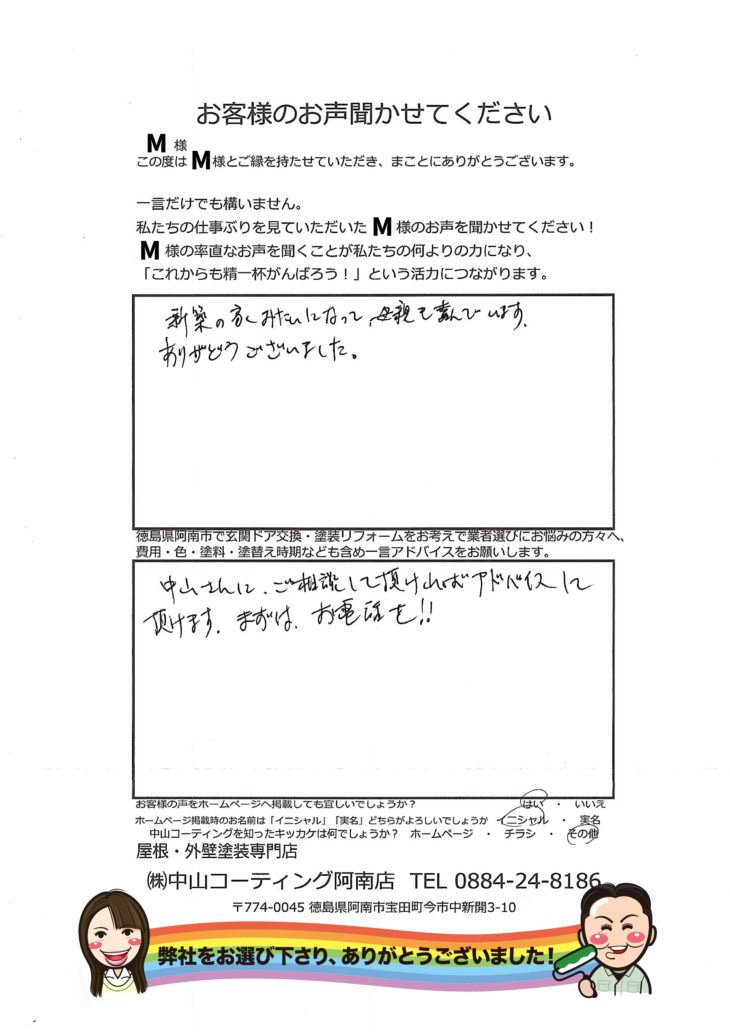 お客様のお声聞かせてください
M 様
この度は M 様とご縁を持たせていただき、まことにありがとうございます。
一言だけでも構いません。
私たちの仕事ぶりを見ていただいた M 様のお声を聞かせてください！
M 様の率直なお声を聞くことが私たちの何よりの力になり、
「これからも精一杯がんばろう！」という活力につながります。
新築の家みたいになって、母親も喜んでいます。
ありがとうございました。
徳島県阿南市で玄関ドア交換・塗装リフォームをお考えで業者選びにお悩みの方々へ、
費用・色・塗料・塗替え時期なども含め一言アドバイスをお願いします。
中山さんに、ご相談して頂ければアドバイスして
頂けます。まずは、お電話を!!
お客様の声をホームページへ掲載しても宜しいでしょうか？ はい ・ いいえ
ホームページ掲載時のお名前は「イニシャル」「実名」どちらがよろしいでしょうか イニシャル ・ 実名
中山コーティングを知ったキッカケは何でしょうか？ ホームページ ・ チラシ ・ その他
屋根・外壁塗装専門店
㈱中山コーティング阿南店 TEL 0884-24-8186
〒774-0045 徳島県阿南市宝田町今市中新開3-10
弊社をお選び下さり、ありがとうございました！